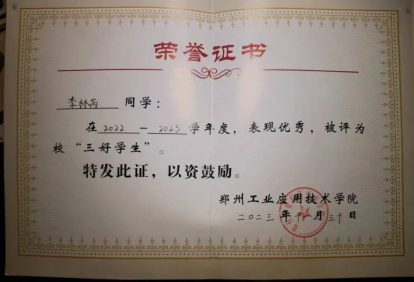 荣誉证书
李林芮 同学：
在2022-2023学年度，表现优秀，被评为
校“三好学生”。
特发此证，以资鼓励。
郑州工业应用技术学院
二〇二三年十一月三十日